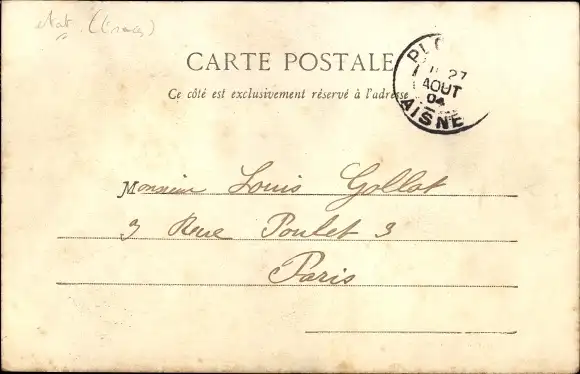 CARTE POSTALE
Ce côté est exclusivement réservé à l'adresse
27
AOUT
04
AISNE
Monsieur Louis Gollot
3 Rue Poulet 3
Paris